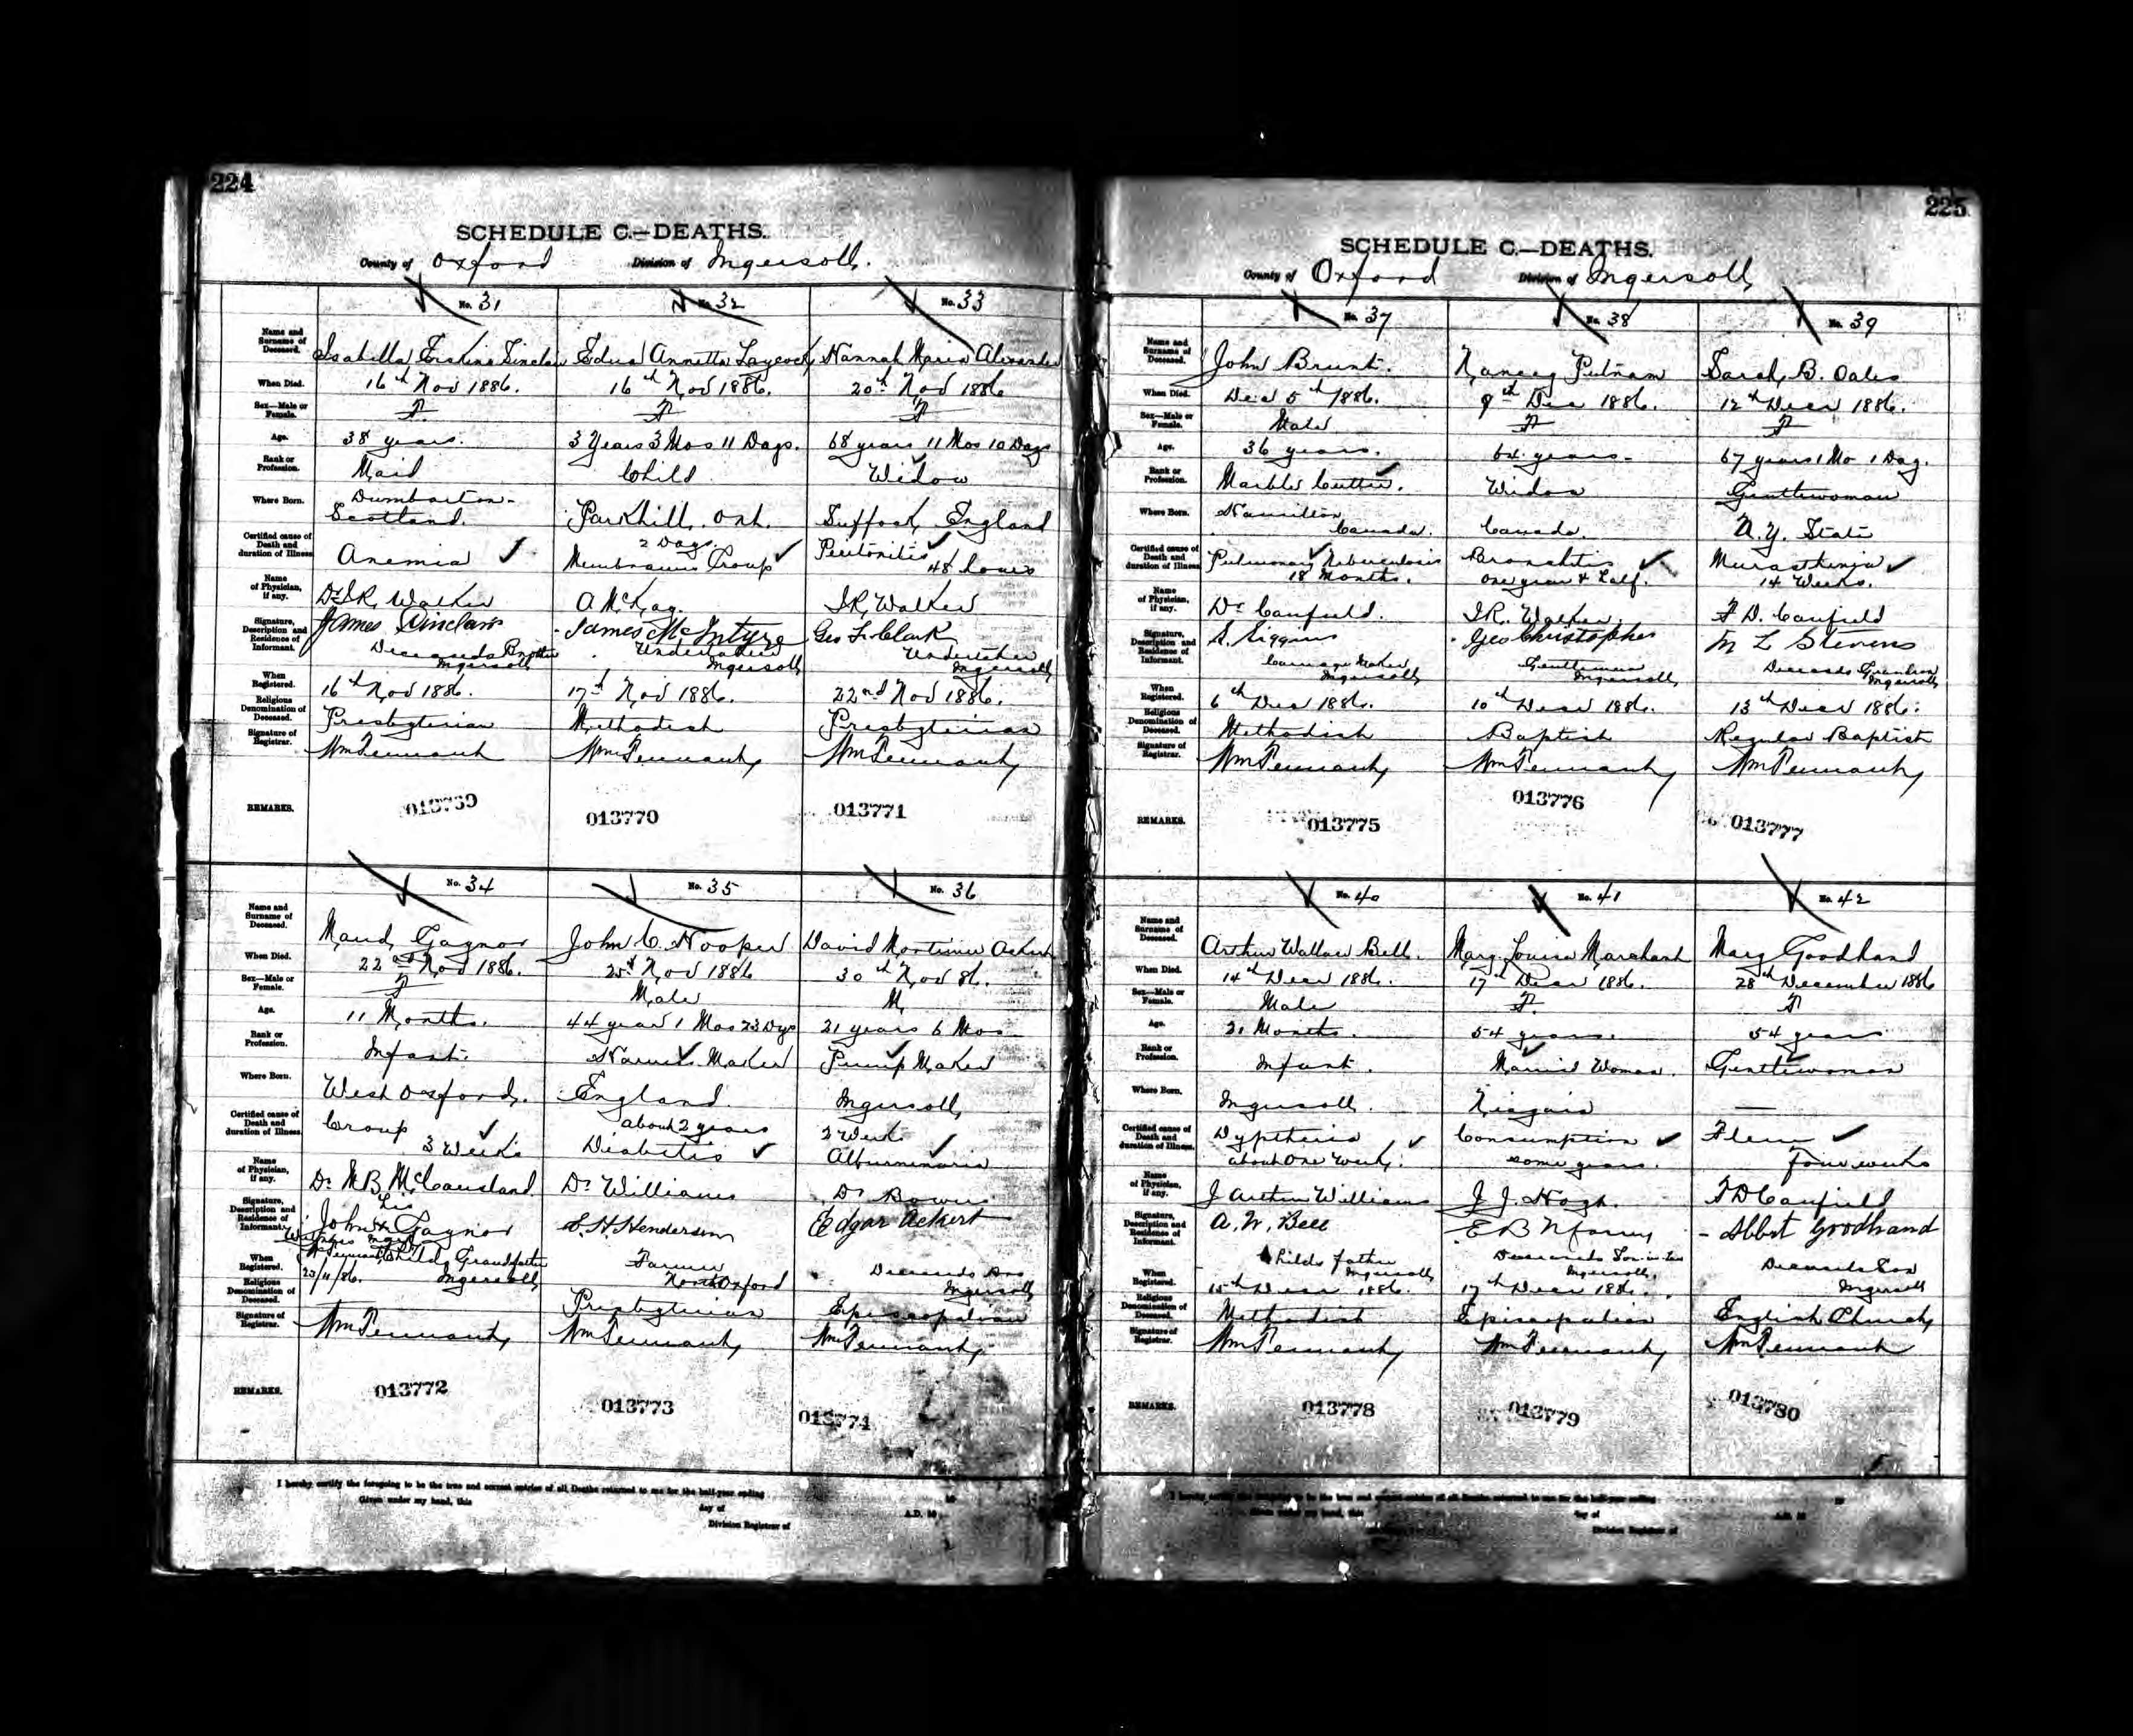 224
SCHEDULE C.—DEATHS.
County of Oxford Division of Ingersoll.
No. 31 No. 32 No. 33
Name and Surname of Deceased. Isabella Erskine Sinclair Edna Annetta Laycock Hannah Maria Alexander
When Died. 16th Nov 1886. 16th Nov 1886. 20th Nov 1886
Sex—Male or Female. F. F F
Age. 38 years. 3 Years 3 Mos 11 Days. 68 years 11 Mos 10 Days
Rank or Profession. Maid Child Widow
Where Born. Dumbarton - Scotland. Parkhill. Ont. Suffock, England
Certified cause of Death and duration of Illness Anemia 2 Days. Membranous Croup Peritonitis 48 hours
Name of Physician, if any. Dr I.R. Walker A McKay. I.R. Walker
Signature, Description and Residence of Informant. James Sinclair James McIntyre Geo F. Clark
Deceaseds Brother Ingersoll Undertaker Ingersoll Undertaker Ingersoll
When Registered. 16th Nov 1886. 17th Nov 1886. 22nd Nov 1886.
Religious Denomination of Deceased. Presbyterian Methodist Presbyterian
Signature of Registrar. Wm Tennant Wm Tennant Wm Tennant
REMARKS. 013769 013770 013771
No. 34 No. 35 No. 36
Name and Surname of Deceased. Maud Gaynor John C. Hooper David Mortimer Ackert
When Died. 22nd Nov 1886. 25th Nov 1886 30th Nov 86.
Sex—Male or Female. F Male M.
Age. 11 Months. 44 years 1 Mos 23 Dys 21 years 6 Mos
Rank or Profession. Infant. Harness Maker Pump Maker
Where Born. West Oxford. England. Ingersoll
Certified cause of Death and duration of Illness Croup 3 Weeks about 2 years Diabetis 2 Weeks Alburminaria
Name of Physician, if any. Dr M B McCausland Dr Williams Dr Bowers
Signature, Description and Residence of Informant. John his x Gaynor S. H. Henderson Edgar Ackert
Childs Grandfather Ingersoll Farmer North Oxford Deceaseds Ingersoll
When Registered. 23/11/86.
Religious Denomination of Deceased. Presbyterian Episcopalian
Signature of Registrar. Wm Tennant Wm Tennant Wm Tennant
REMARKS. 013772 013773 013774
I hereby certify the foregoing to be the true and correct entries of all Deaths returned to me for the half-year ending
Given under my hand, this day of A.D. 18
Division Registrar of
225
SCHEDULE C.—DEATHS.
County of Oxford Division of Ingersoll
No. 37 No. 38 No. 39
Name and Surname of Deceased. John Brunt. Nancy Putnam Sarah B. Oales
When Died. Dec 5th 1886. 9th Dec 1886. 12th Decr 1886.
Sex—Male or Female. Male F F
Age. 36 years. 64 years. 67 years 1 Mo 1 Day.
Rank or Profession. Marble Cutter. Widow Gentlewoman
Where Born. Hamilton Canada. Canada. N.Y. State
Certified cause of Death and duration of Illness Pulmonary Tuberculosis 18 Months. Bronchitis one year & half. 14 Weeks.
Name of Physician, if any. Dr Canfield. I.R. Walker. F D. Canfield
Signature, Description and Residence of Informant. S. Siggins Geo Christopher M L Stevens
Carriage Maker Ingersoll Gentleman Ingersoll Deceaseds Grandson Ingersoll
When Registered. 6th Decr 1886. 10th Decr 1886. 13th Decr 1886.
Religious Denomination of Deceased. Methodist Baptist Regular Baptist
Signature of Registrar. Wm Tennant Wm Tennant Wm Tennant
REMARKS. 013775 013776 013777
No. 40 No. 41 No. 42
Name and Surname of Deceased. Arthur Wallace Bell. Mary Louisa Marchant Mary Goodhand
When Died. 14th Decr 1886. 17th Decr 1886. 28th December 1886
Sex—Male or Female. Male F. F
Age. 21 Months. 54 years. 54 years
Rank or Profession. Infant. Married Woman. Gentlewoman
Where Born. Ingersoll. Niagara —
Certified cause of Death and duration of Illness Dyptheria about One Week. Consumption some years. four weeks
Name of Physician, if any. J Arthur Williams J. J. Hoyt. F D Canfield
Signature, Description and Residence of Informant. A. W. Bell E B Goodhand
Childs father Ingersoll Deceaseds Son in law Ingersoll. Deceaseds Son Ingersoll
When Registered. 15th Decr 1886. 17th Decr 1886.
Religious Denomination of Deceased. Methodist Episcopalian English Church
Signature of Registrar. Wm Tennant Wm Tennant Wm Tennant
REMARKS. 013778 013779 013780